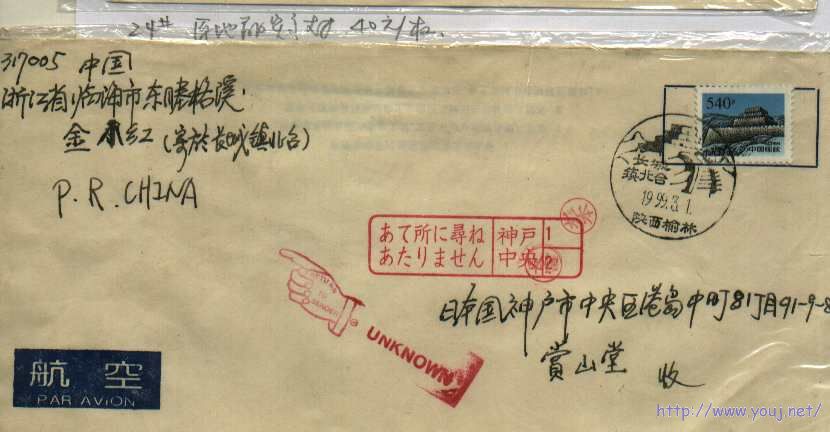 24# 原地 40元/枚
317005 中国
浙江省临海市东塍格溪
金小红(寄於长城镇北台)
P.R.CHINA
540分
中国邮政
长城
镇北台
1999.3.1
陕西榆林
あて所に尋ね
あたりません
神戸 1
中央 2
RETURN
TO
SENDER
UNKNOWN
日本国神户市中央区港島中町8丁目91-9-8
賞山堂 收
航空
PAR AVION
http://www.youj.net/